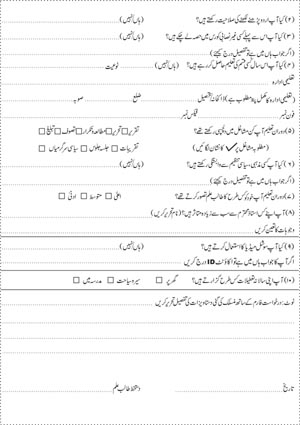 (۲) کیا آپ اردو پڑھنے لکھنے کی صلاحیت رکھتے ہیں؟ (ہاں/نہیں)
(۳) کیا آپ اس سے پہلے کسی غیر نصابی کورس میں حصہ لے چکے ہیں؟ (ہاں/نہیں)
(اگر جواب ہاں میں ہے تو تفصیل درج کیجئے)
(۴) کیا آپ اس سال کسی قسم کی تعلیم حاصل کر رہے ہیں؟ (ہاں/نہیں) نوعیت
تعلیمی ادارہ
(تعلیمی ادارہ کا مکمل پتا مطلوب ہے) ڈاکخانہ/تحصیل ضلع صوبہ
فون نمبر فیکس نمبر
(۵) دوران تعلیم آپ کن مشاغل میں دلچسپی رکھتے تھے؟ تقریر تحریر مطالعہ تصوف تبلیغ
(مطلوبہ مشاغل پر ✓ کا نشان لگائیں) تقریبات جلسہ جلوس سیاسی سرگرمیاں
(۶) کیا آپ کسی مذہبی، سیاسی تنظیم سے وابستگی رکھتے ہیں؟ (ہاں/نہیں)
(اگر جواب ہاں میں ہے تو تفصیل درج کیجئے)
(۷) دوران تعلیم آپ خود کو کس طرح کا طالب علم تصور کرتے تھے؟ اعلیٰ متوسط ادنیٰ
(۸) آپ اپنے کس استاد محترم سے سب سے زیادہ متاثر ہیں؟ (نام تحریر کریں)
وجوہات کا تعین کریں
(۹) کیا آپ سوشل میڈیا کا استعمال کرتے ہیں؟ (ہاں/نہیں)
اگر آپ کا جواب ہاں میں ہے تو اکاؤنٹ ID درج کریں
(۱۰) آپ اپنی سالانہ تعطیلات کس طرح گزارتے ہیں؟ گھر پر سیر و سیاحت مدرسہ میں
نوٹ: درخواست فارم کے ساتھ منسلک کی گئی دستاویزات کی تفصیل تحریر کریں
تاریخ دستخط طالب علم